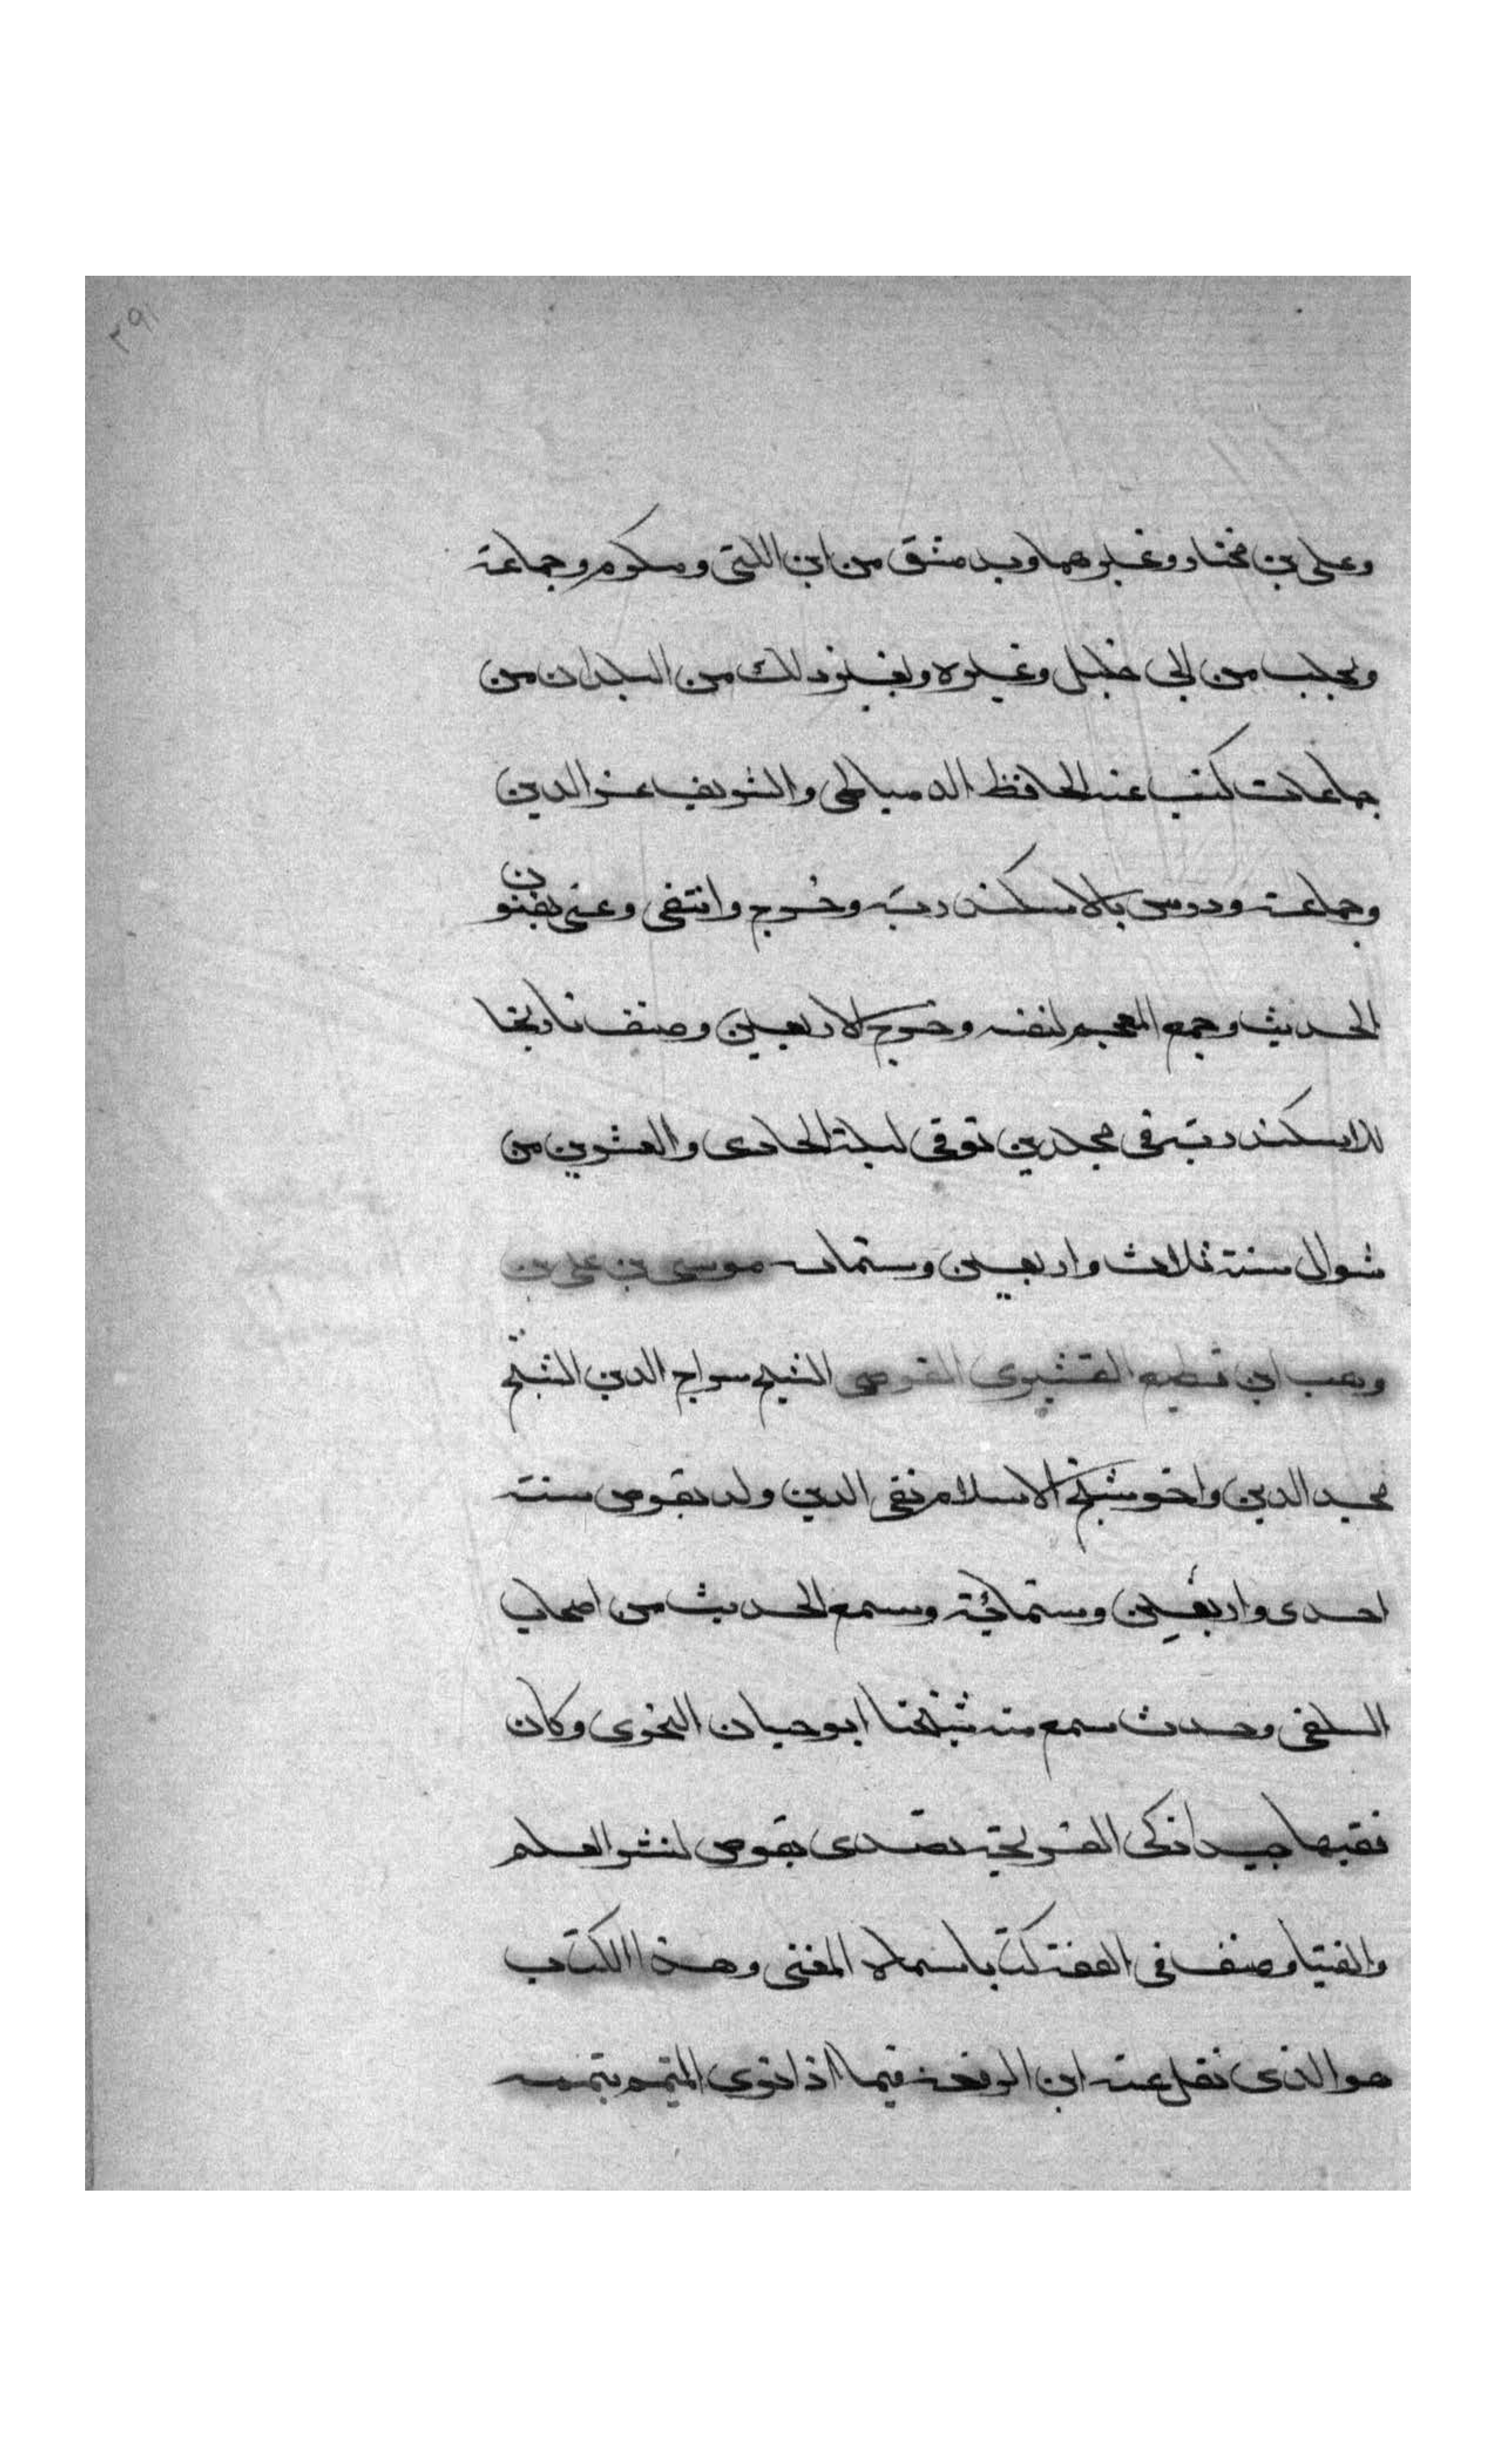 ٢٩١
وعلى بن مختار وغيرهما وبدمشق من ابن اللتى ومكرم وجماعة
وبحلب من ابى خليل وغيره وبغير ذلك من البلدان من
جماعات كتب عنه الحافظ الدمياطى والشريف عز الدين
وجماعة ودرس بالاسكندرية وخرج وانتقى وعنى بفنون
الحديث وجمع المعجم لنفسه وخرج الاربعين وصنف تاريخا
للاسكندرية فى مجلدين توفى ليلة الحادى والعشرين من
شوال سنة ثلاث واربعين وستمائة موسى بن على بن
وهب ابن مطيع القشيرى القوصى الشيخ سراج الدين الشيخ
مجد الدين واخو شيخ الاسلام تقى الدين ولد بقوص سنة
احدى واربعين وستمائة وسمع الحديث من اصحاب
السلفى وحدث سمع منه شيخنا ابو حيان النحوى وكان
فقيها جيدا ذكى القريحة تصدى بقوص لنشر العلم
والفتيا وصنف فى الفقه كتابا سماه المغنى وهذا الكتاب
هو الذى نقل عنه ابن الرفعة فيما اذا نوى المتيمم بتيممه